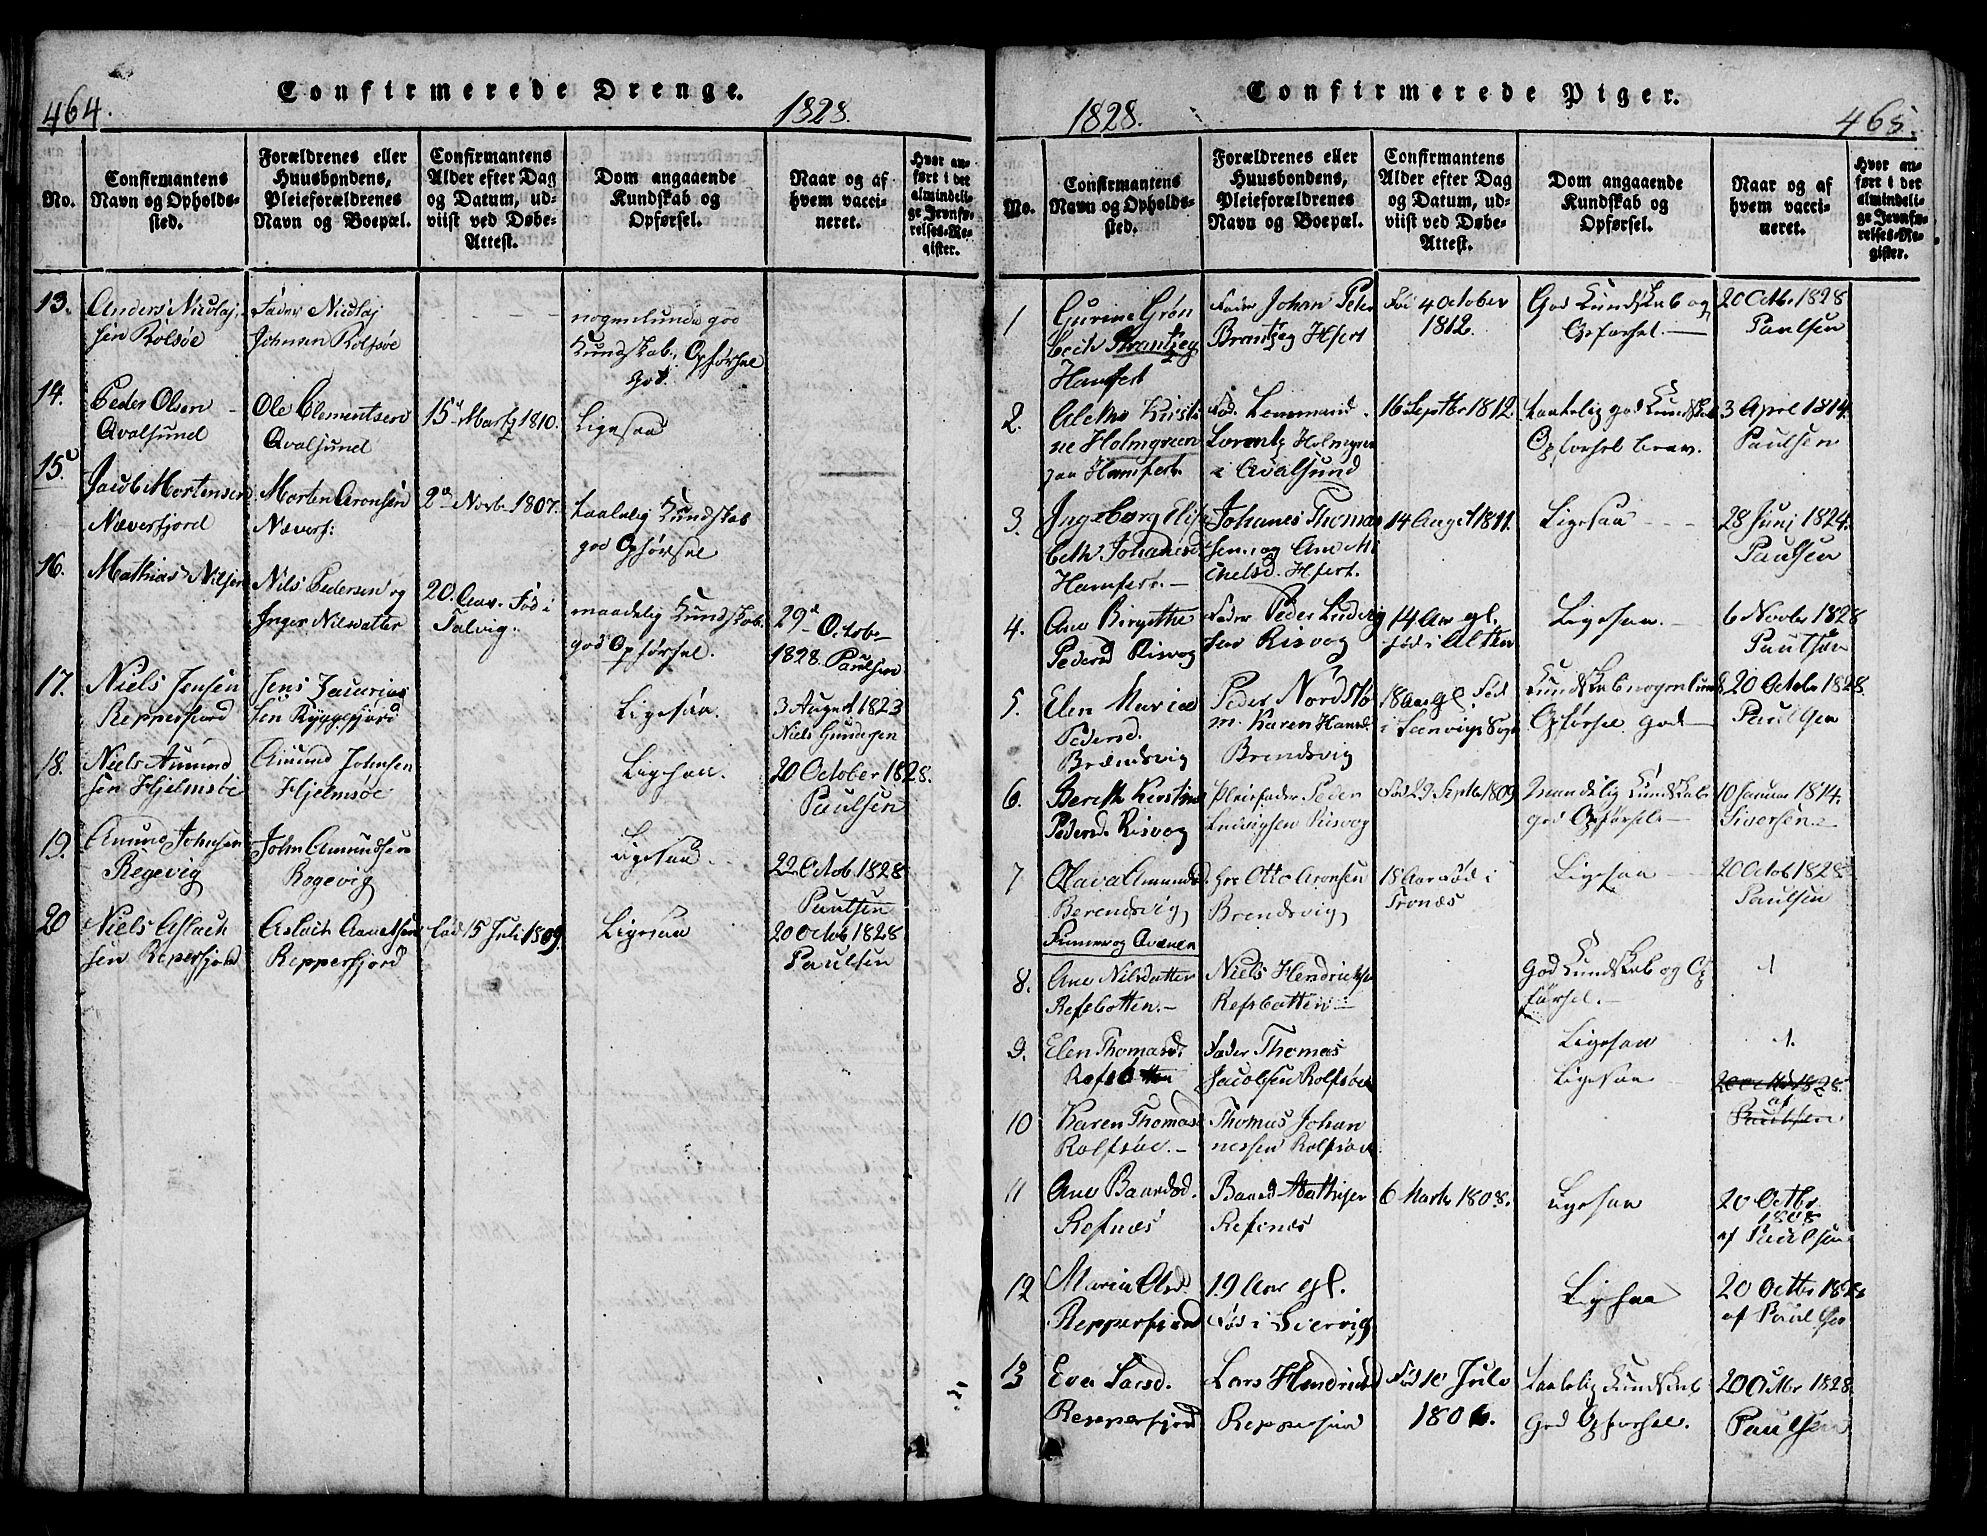 464.
Confirmerede Drenge.
1828.
No.
Confirmantens Navn og Opholdssted.
Forældrenes eller Huusbondens, Pleieforældrenes Navn og Boepæl.
Confirmantens Alder efter Dag og Datum, udviist ved Døbe-Attest.
Dom angaaende Kundskab og Opførsel.
Naar og af hvem vaccineret.
Hvor anført i det almindelige Jevnførelses-Register.
13.
Anders Nicolaj
sen Rolsøe
Fader Nicolaj
Johnsen Rolfsøe
nogenlunde god
Kundskab, Opførsel
God.
14.
Peder Olsen
Qvalsund
Ole Clementsen
Qvalsund
15 Martz 1810.
Ligesaa
15
Jacob Mortensen
Næverfjord
Morten Aronsen
Næverf:
2 Novbr 1807.
taalelig Kundskab
god Opførsel
16.
Mathias Nilsen
Nils Pedersen og
Inger Nilsdatter
20. Aar. Fød i
Talvig.
maadelig Kundskab.
god Opførsel.
29 Octobr
1828. Paulsen
17.
Niels Jensen
Repperfiord
Jens Zacarias
sen Ryggefjord
Ligesaa.
3 August 1823
Niels Gundersen
18.
Niels Amund
sen Hjelmsøe
Amund Johnsen
Hjelmsøe
Ligesaa.
20 October 1828.
Paulsen
19.
Amund Johnsen
Regevig
John Amundsen
Rogevig
Ligesaa
22 Octob. 1828
Paulsen
20
Niels Aslach
sen Reperfjord
Aslach
Repperfjord
fød 15 Juli 1809.
Ligesaa
20 Octob 1828
Paulsen
1828.
Confirmerede Piger.
465.
No.
Confirmantens Navn og Opholdssted.
Forældrenes eller Huusbondens, Pleieforældrenes Navn og Boepæl.
Confirmantens Alder efter Dag og Datum, udviist ved Døbe-Attest.
Dom angaaende Kundskab og Opførsel.
Naar og af hvem vaccineret.
Hvor anført i det almindelige Jevnførelses-Register.
1
Gurine Grøn
beck Brantzeg
Hamfert
Fader Johan Peter
Brantzeg Hfert
Fød 4 October
1812.
God Kundskab og
Opførsel.
20 Octbr 1828
Paulsen
2.
Kirsti
ne Holmgreen
paa Hamfert.
Fød. Lensmand
Lorentz Holmgren
i Qvalsund
16 Septbr 1812.
taalelig god Kundskab
Opførsel brav.
3 April 1814.
Paulsen
3.
Ingeborg Elisa
beth Johanesd.
Hamfert.
Johanes Thomas
sen og Ane Mi
chelsd. Hfert.
14 August 1811.
Ligesaa
28 Junj 1824.
Paulsen
4.
Ane Birgithe
Pedersd Risvog
Fader Peder Ludvig
sen Risvog
14 Aar gl.
født i Alten
Ligesaa.
6 Novbr 1828
Paulsen
5.
Elen Maria
Pedersd.
Brændsvig
Peder Nordstrø
m. Karen Hansd.
Brendsvig
18 Aar gl. Fød
i Leenvigs Sogn
Kundskab nogenlunde
Opførsel god
20 Octobr 1828.
Paulsen
6.
Bereth Kirstine
Pedersd Risvog
Pleiefader Peder
Ludvigsen Risvog
Fød 29 Septbr 1809
Maadelig Kundskab
god Opførsel
10 Januar 1814.
Siversen
7
Olava Amundsd.
Berendsvig
Finner og Qvæner
Otto Aronsen
Brendsvig
18 Aar Fød i
Tronæs
Ligesaa
20 Octob 1828
Paulsen
8.
Ane Nilsdatter
Refsbotten.
Niels Hendricksen
Refsbotten
God Kundskab og Op
førsel.
9.
Elen Thomasd:
Refsbotten
Fader Thomas
Jacobsen Rolfsøe
Ligesaa
10
Karen Thomasd
Rolfsøe.
Thomas Johan
nessen Rolfsøe
Ligesaa
20 Octbr 1828.
af
Paulsen
11
Ane Baardsd.
Refnæs
Baard Mathisen
Refsnæs
6 Marts 1808.
Ligesaa
20 Octbr.
1808
af Paulsen
12
Maria Olsd.
Repperfiord
19 Aar gl.
Fød i
Ligesaa
20 Octbr 1828
af Paulsen
13
Eva Larsd.
Repperfjord
Lars Hendricksen
Repperfiord
Fød 10 Julo
1806.
Taalelig Kundskab
God Opførsel.
20 Octbr 1828.
Paulsen